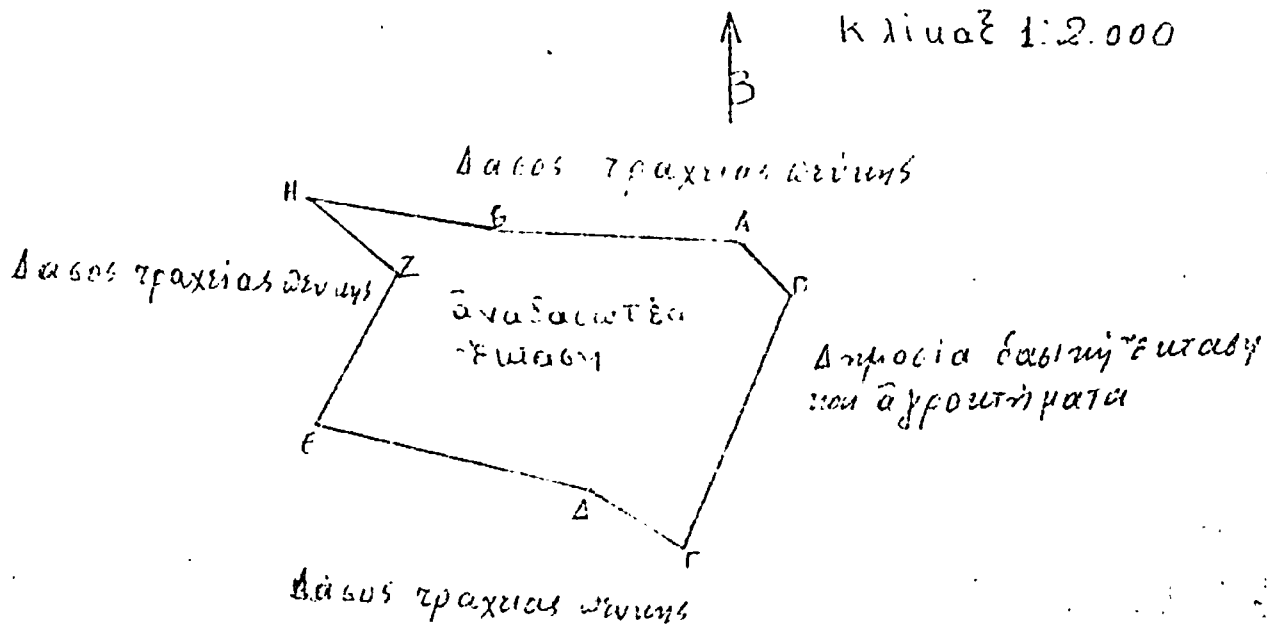 Κλίμαξ 1:2.000
Β
Δασος τραχειας πεύκης
Η
Θ
Α
Β
Ζ
Δασος τραχείας πευκης
ἀναδασωτέα
ἔκταση
Δημοσία δασική ἔκταση
και ἀγροκτήματα
Ε
Δ
Γ
Δάσος τραχειας πευκης